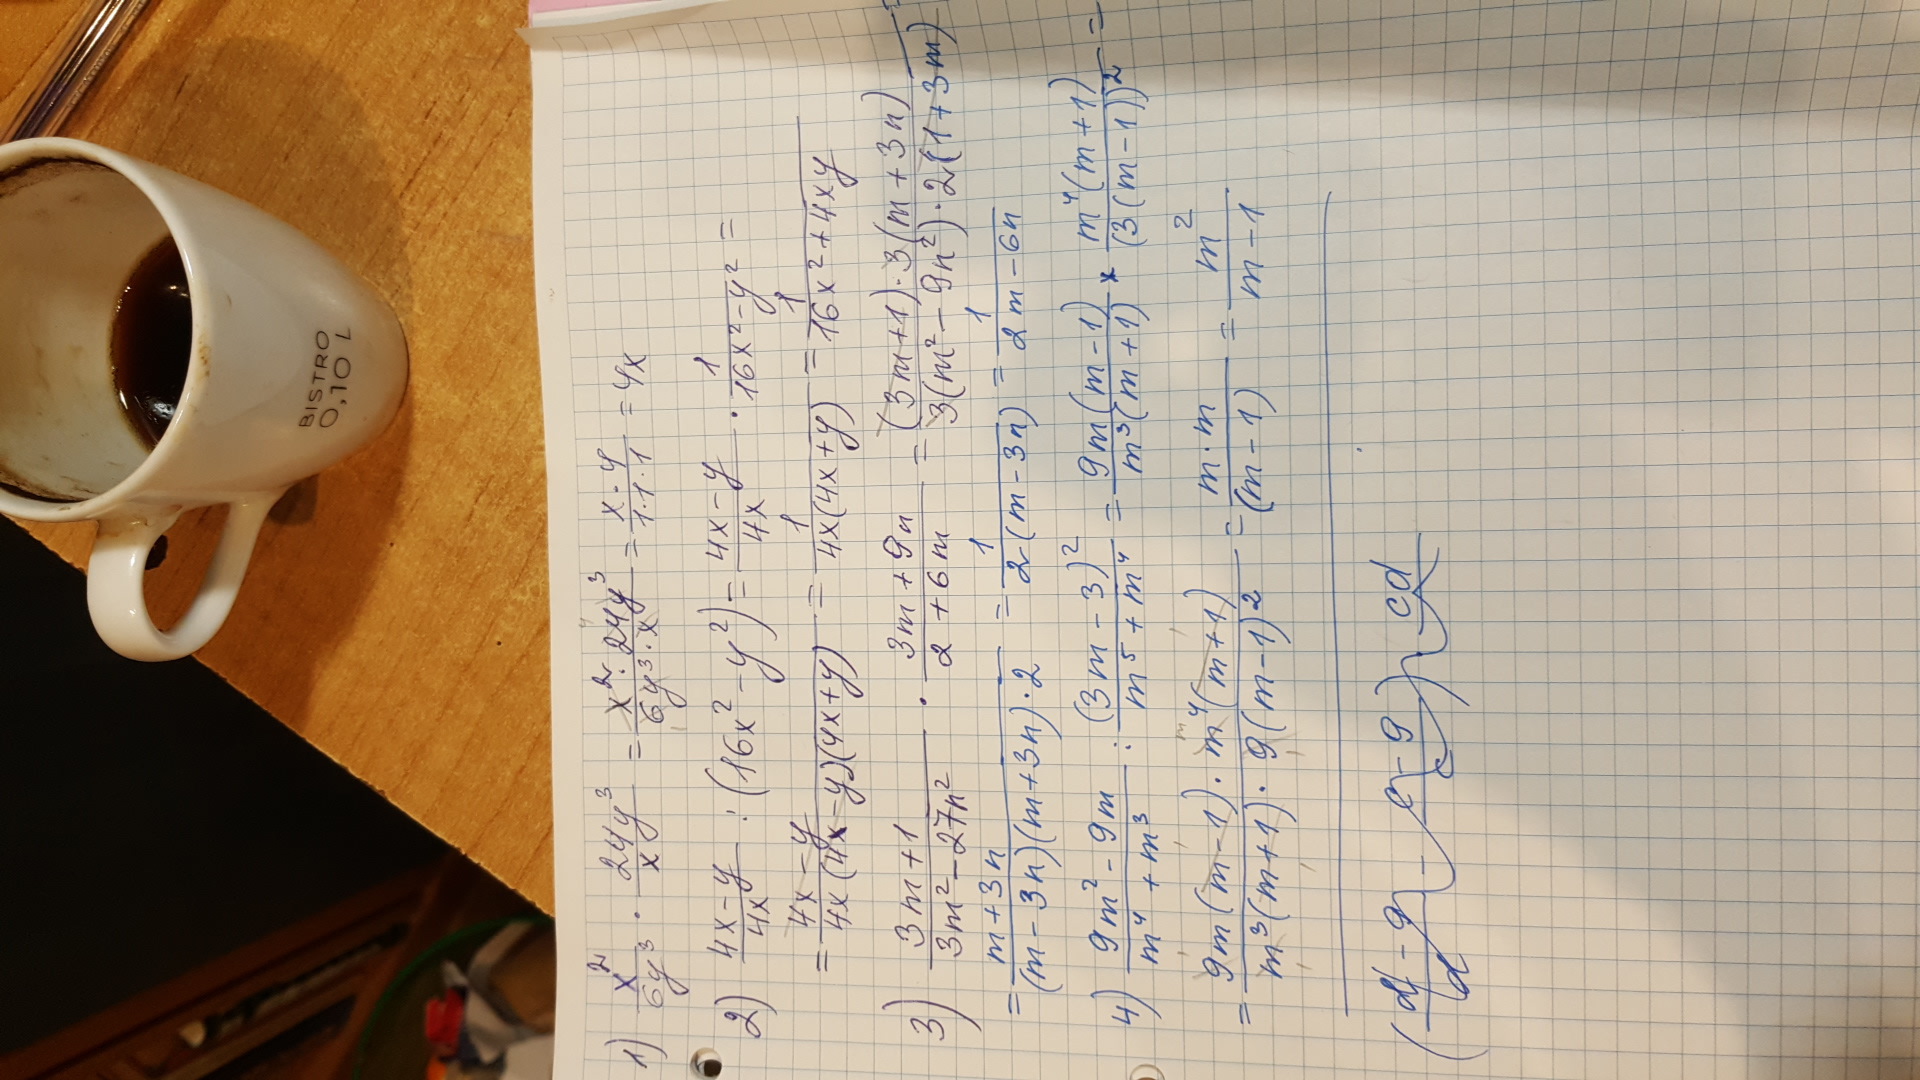 BISTRO
0,10 L
1) x²/6y³ · 24y³/x = x²·24y³/6y³·x = x·4/1·1·1 = 4x
2) 4x-y/4x : (16x²-y²) = 4x-y/4x · 1/16x²-y² =
= 4x-y/4x(4x-y)(4x+y) = 1/4x(4x+y) = 1/16x²+4xy
3) 3m+1/3m²-27n² · 3m+9n/2+6m = (3m+1)·3(m+3n)/3(m²-9n²)·2(1+3m) =
= m+3n/(m-3n)(m+3n)·2 = 1/2(m-3n) = 1/2m-6n
4) 9m²-9m/m⁴+m³ : (3m-3)²/m⁵+m⁴ = 9m(m-1)/m³(m+1) x m⁴(m+1)/(3(m-1))² =
= 9m(m-1)·m⁴(m+1)/m³(m+1)·9(m-1)² = m·m/(m-1) = m²/m-1